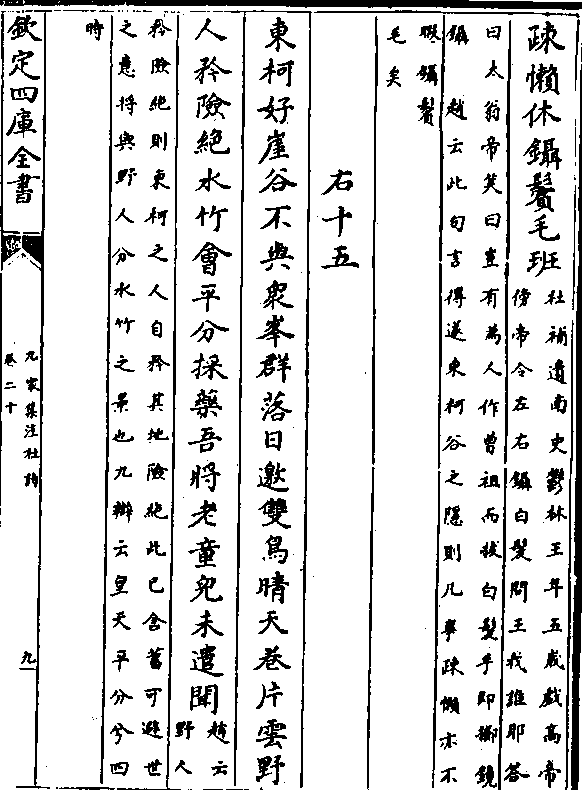 疎懶休鑷鬢毛班
杜補遺南史鬱林王年五歳戲高帝
傍帝令左右鑷白髮問王我誰耶答
曰太翁帝笑曰豈有為人作曾祖而拔白髮乎即擲鏡
鑷　趙云此句言得遂東柯谷之隱則凡事疎懶亦不
暇鑷鬢
毛矣
右十五
東柯好崖谷不與衆峯群落日邀雙鳥晴天卷片雲野
人矜險絶水竹會平分採藥吾將老童兒未遣聞
趙云
野人
矜險絶則東柯之人自矜其地險絶此已含蓄可避世
之意將與野人分水竹之景也九辯云皇天平分兮四
時
欽定四庫全書
九家集注杜詩
卷二十
九